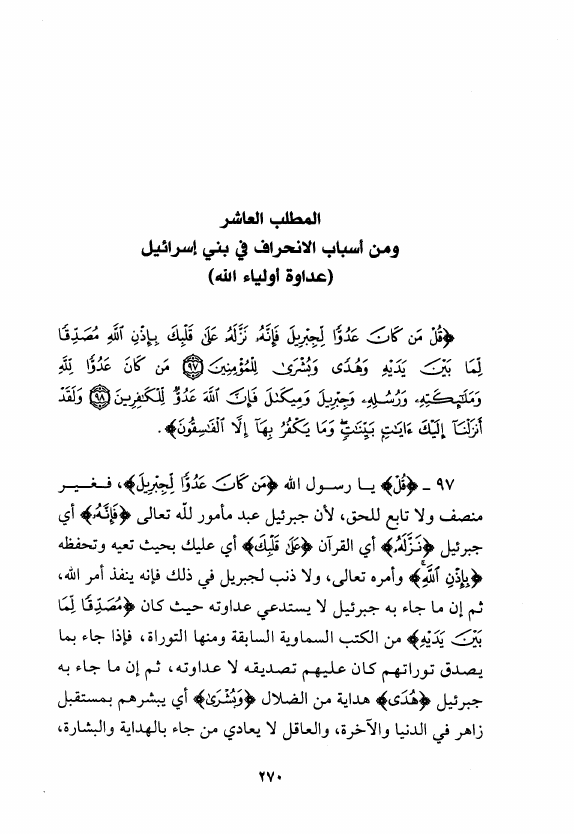 المطلب العاشر
ومن أسباب الانحراف في بني إسرائيل
(عداوة أولياء الله)
﴿قُلْ مَن كَانَ عَدُوًّا لِّجِبْرِيلَ فَإِنَّهُۥ نَزَّلَهُۥ عَلَىٰ قَلْبِكَ بِإِذْنِ اللَّهِ مُصَدِّقًا
لِّمَا بَيْنَ يَدَيْهِ وَهُدًى وَبُشْرَىٰ لِلْمُؤْمِنِينَ ۝٩٧ مَن كَانَ عَدُوًّا لِّلَّهِ
وَمَلَٰٓئِكَتِهِۦ وَرُسُلِهِۦ وَجِبْرِيلَ وَمِيكَىٰلَ فَإِنَّ اللَّهَ عَدُوٌّ لِّلْكَٰفِرِينَ ۝٩٨ وَلَقَدْ
أَنزَلْنَآ إِلَيْكَ ءَايَٰتٍۭ بَيِّنَٰتٍۖ وَمَا يَكْفُرُ بِهَآ إِلَّا الْفَٰسِقُونَ﴾.
٩٧ ـ ﴿قُلْ﴾ يا رسول الله ﴿مَن كَانَ عَدُوًّا لِّجِبْرِيلَ﴾، فغير
منصف ولا تابع للحق، لأن جبرئيل عبد مأمور لله تعالى ﴿فَإِنَّهُۥ﴾ أي
جبرئيل ﴿نَزَّلَهُۥ﴾ أي القرآن ﴿عَلَىٰ قَلْبِكَ﴾ أي عليك بحيث تعيه وتحفظه
﴿بِإِذْنِ اللَّهِ﴾ وأمره تعالى، ولا ذنب لجبريل في ذلك فإنه ينفذ أمر الله،
ثم إن ما جاء به جبرئيل لا يستدعي عداوته حيث كان ﴿مُصَدِّقًا لِّمَا
بَيْنَ يَدَيْهِ﴾ من الكتب السماوية السابقة ومنها التوراة، فإذا جاء بما
يصدق توراتهم كان عليهم تصديقه لا عداوته، ثم إن ما جاء به
جبرئيل ﴿هُدًى﴾ هداية من الضلال ﴿وَبُشْرَىٰ﴾ أي يبشرهم بمستقبل
زاهر في الدنيا والآخرة، والعاقل لا يعادي من جاء بالهداية والبشارة،
٢٧٠